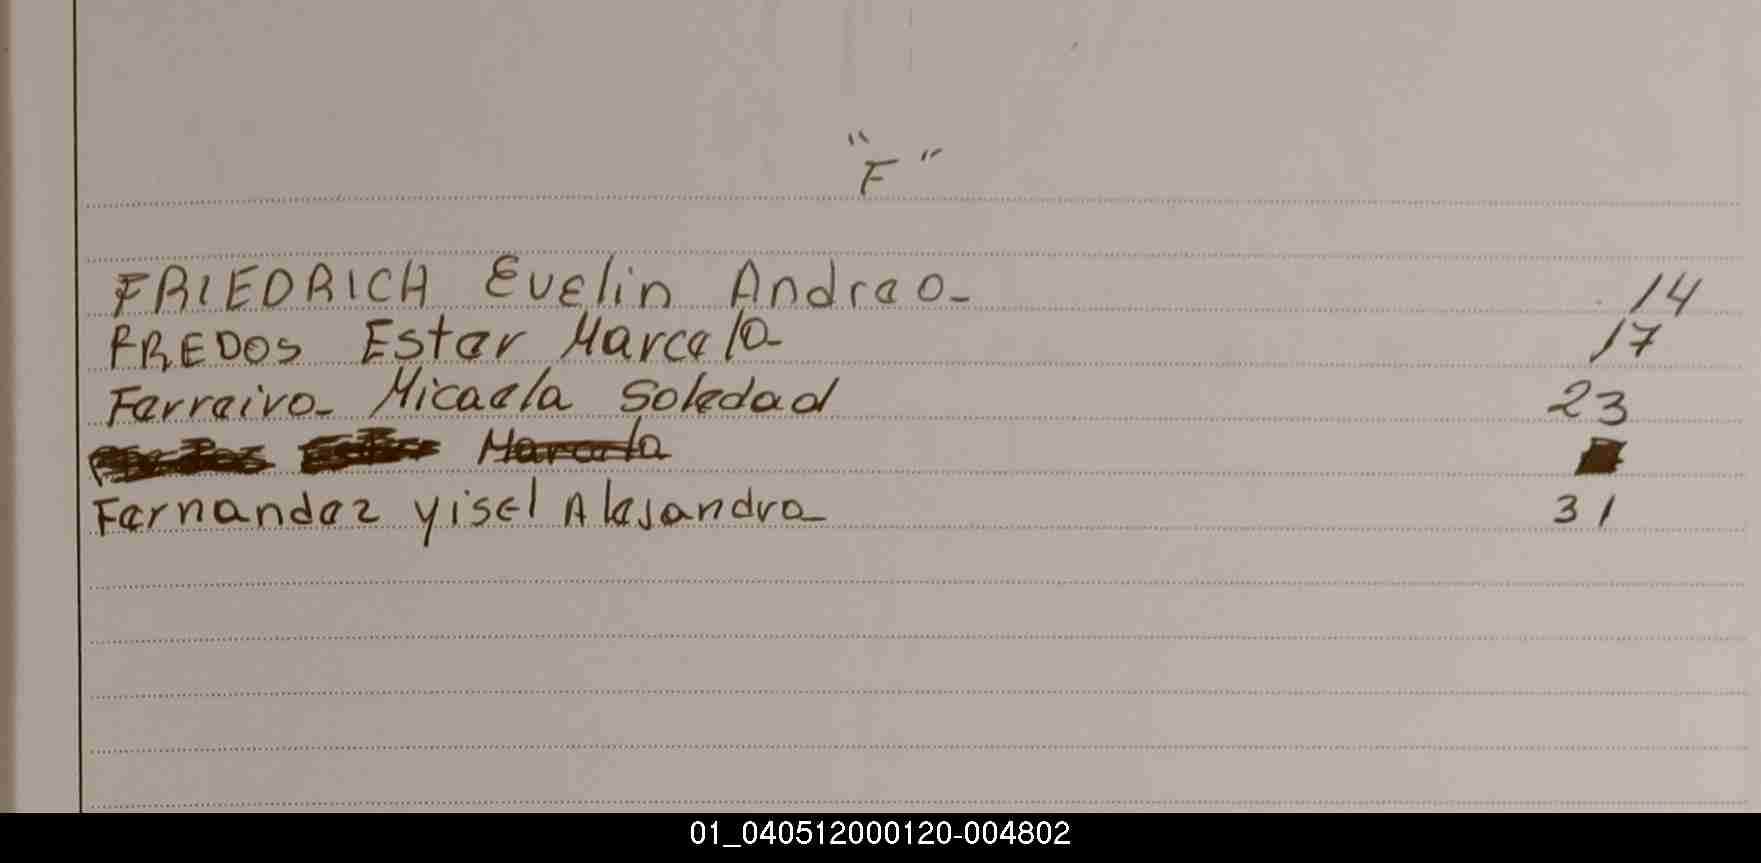 "F"
FRIEDRICH Evelin Andrea 14
FREDOS Ester Marcela 17
Ferreira Micaela Soledad 23
Marcela
Fernandez Yisel Alejandra 31
01_040512000120-004802